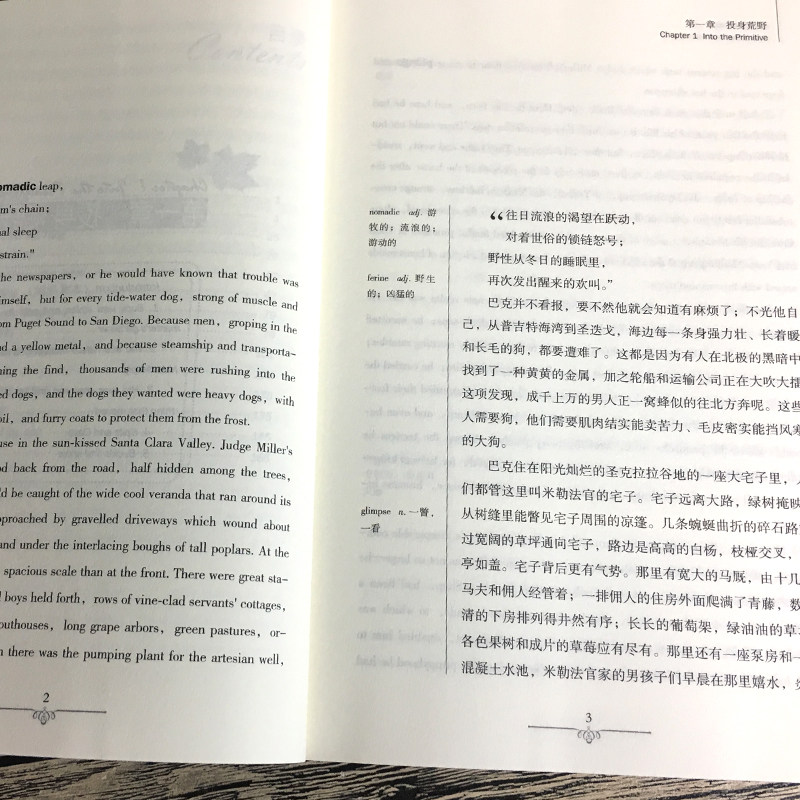 omadic leap,
m's chain;
al sleep
strain."
he newspapers, or he would have known that trouble was
imself, but for every tide-water dog, strong of muscle and
om Puget Sound to San Diego. Because men, groping in the
d a yellow metal, and because steamship and transporta-
ing the find, thousands of men were rushing into the
ed dogs, and the dogs they wanted were heavy dogs, with
oil, and furry coats to protect them from the frost.
use in the sun-kissed Santa Clara Valley. Judge Miller's
d back from the road, half hidden among the trees,
ld be caught of the wide cool veranda that ran around its
pproached by gravelled driveways which wound about
and under the interlacing boughs of tall poplars. At the
spacious scale than at the front. There were great sta-
d boys held forth, rows of vine-clad servants' cottages,
outhouses, long grape arbors, green pastures, or-
n there was the pumping plant for the artesian well,
2
第一章 投身荒野
Chapter 1 Into the Primitive
nomadic adj. 游
牧的；流浪的；
游动的
ferine adj. 野生
的；凶猛的
glimpse n. 一瞥，
一看
“往日流浪的渴望在跃动，
对着世俗的锁链怒号；
野性从冬日的睡眠里，
再次发出醒来的欢叫。”
巴克并不看报，要不然他就会知道有麻烦了；不光他自
己，从普吉特海湾到圣迭戈，海边每一条身强力壮、长着暖
和长毛的狗，都要遭难了。这都是因为有人在北极的黑暗中
找到了一种黄黄的金属，加之轮船和运输公司正在大吹大擂
这项发现，成千上万的男人正一窝蜂似的往北方奔呢。这些
人需要狗，他们需要肌肉结实能卖苦力、毛皮密实能挡风寒
的大狗。
巴克住在阳光灿烂的圣克拉拉谷地的一座大宅子里，人
们都管这里叫米勒法官的宅子。宅子远离大路，绿树掩映
从树缝里能瞥见宅子周围的凉篷。几条蜿蜒曲折的碎石路
过宽阔的草坪通向宅子，路边是高高的白杨，枝桠交叉，
亭如盖。宅子背后更有气势。那里有宽大的马厩，由十几
马夫和佣人经管着；一排佣人的住房外面爬满了青藤，数
清的下房排列得井然有序；长长的葡萄架，绿油油的草
各色果树和成片的草莓应有尽有。那里还有一座泵房和一
混凝土水池，米勒法官家的男孩子们早晨在那里嬉水，
3